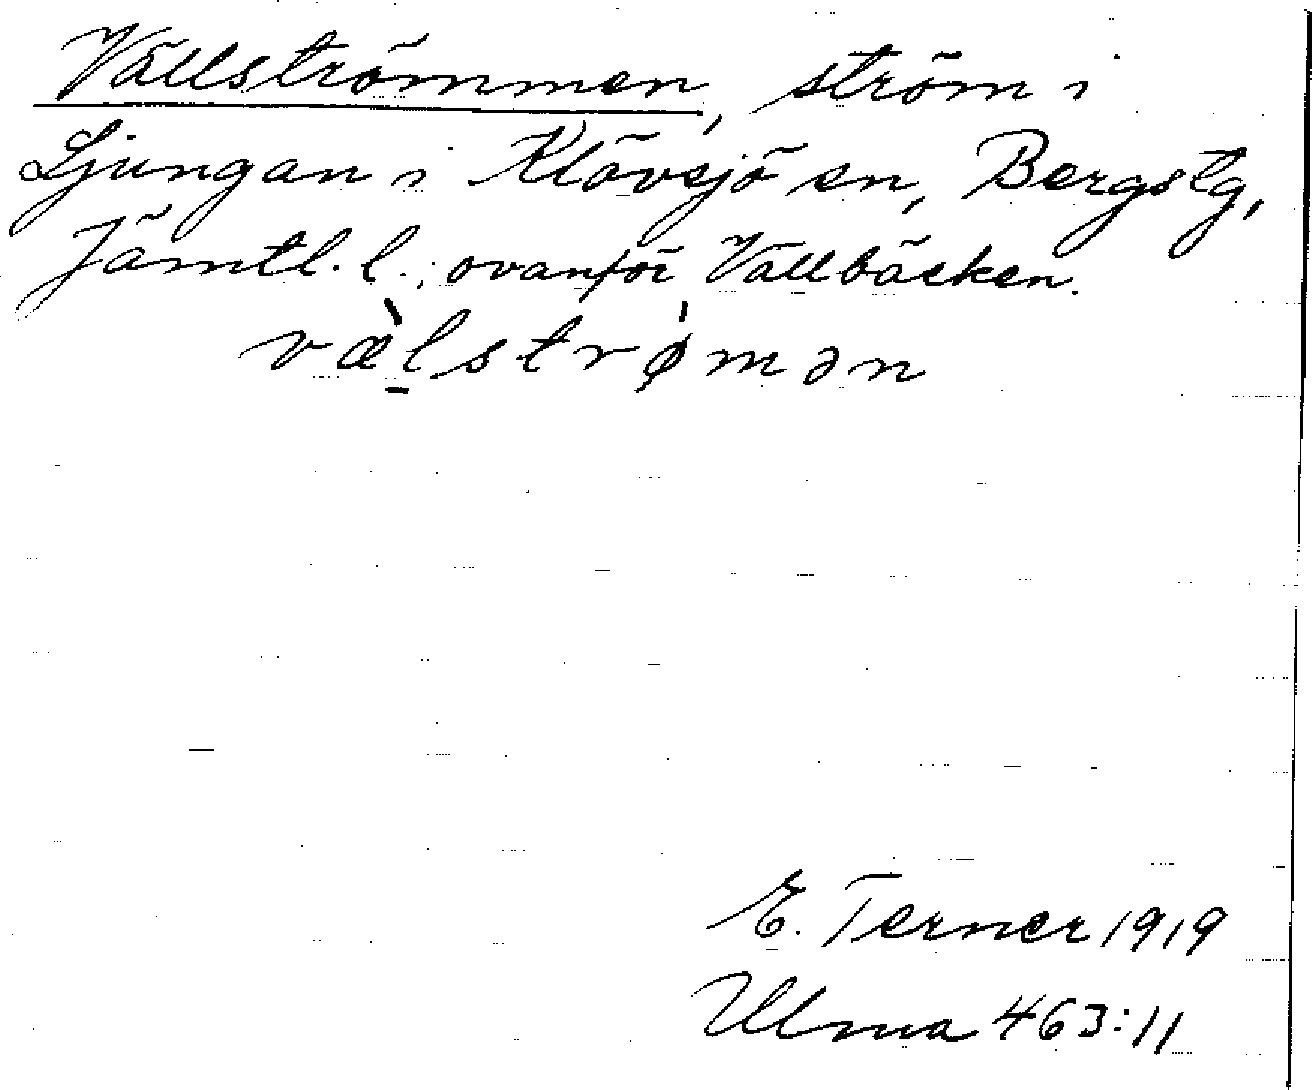 Vällströmmen, ström i
Ljungan i Klövsjö sn, Bergs tg,
Jämtl. l.; ovanför Vällbäcken.
væ̀l̠strø̍mən
E. Terner 1919
Ulma 463:11